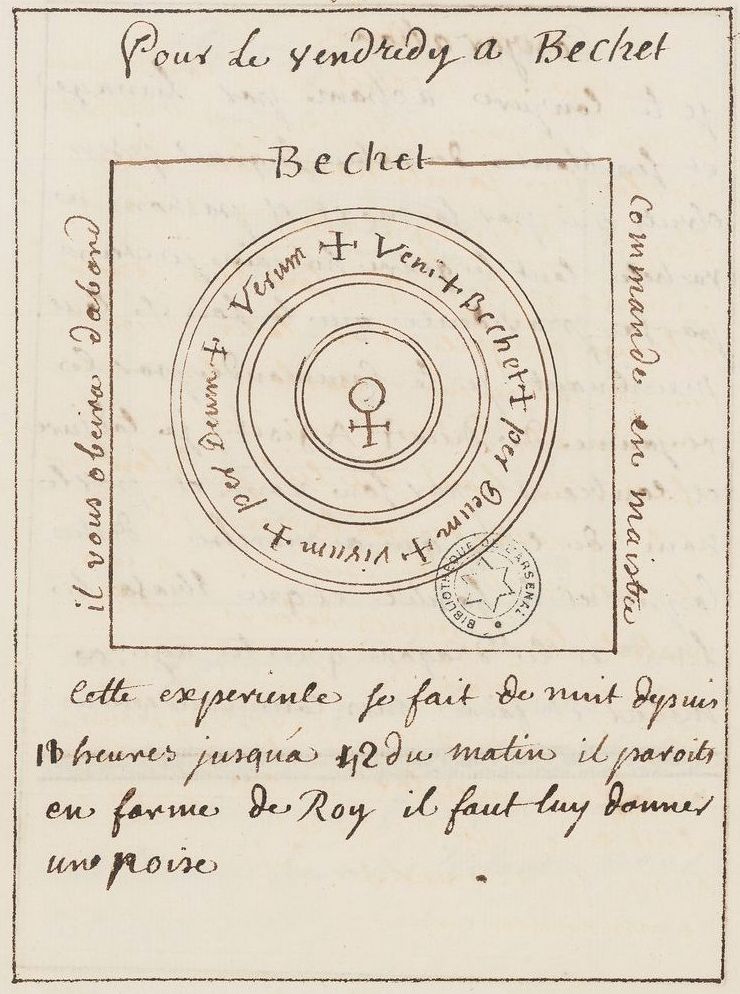 Pour le vendredy a Bechet
Bechet
il vous obeira dabord
Commande en maistre
Verum + Veni + Bechet + per Deum + virum + per Deum +
BIBLIOTHEQUE DE L'ARSENAL
Cette experience se fait de nuit depuis
heures jusqu'a du matin il paroits
en forme de Roy il faut luy donner
une